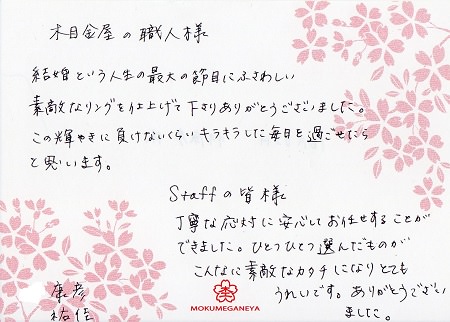 木目金屋の職人様
結婚という人生の最大の節目にふさわしい
素敵なリングを仕上げて下さりありがとうございました。
この輝やきに負けないくらいキラキラした毎日を過ごせたら
と思います。
Staffの皆様
丁寧な応対に安心してお任せすることが
できました。ひとつひとつ選んだものが
こんなに素敵なカタチになりとても
うれしいです。ありがとうござい
ました。
康彦
祐佳
MOKUMEGANEYA